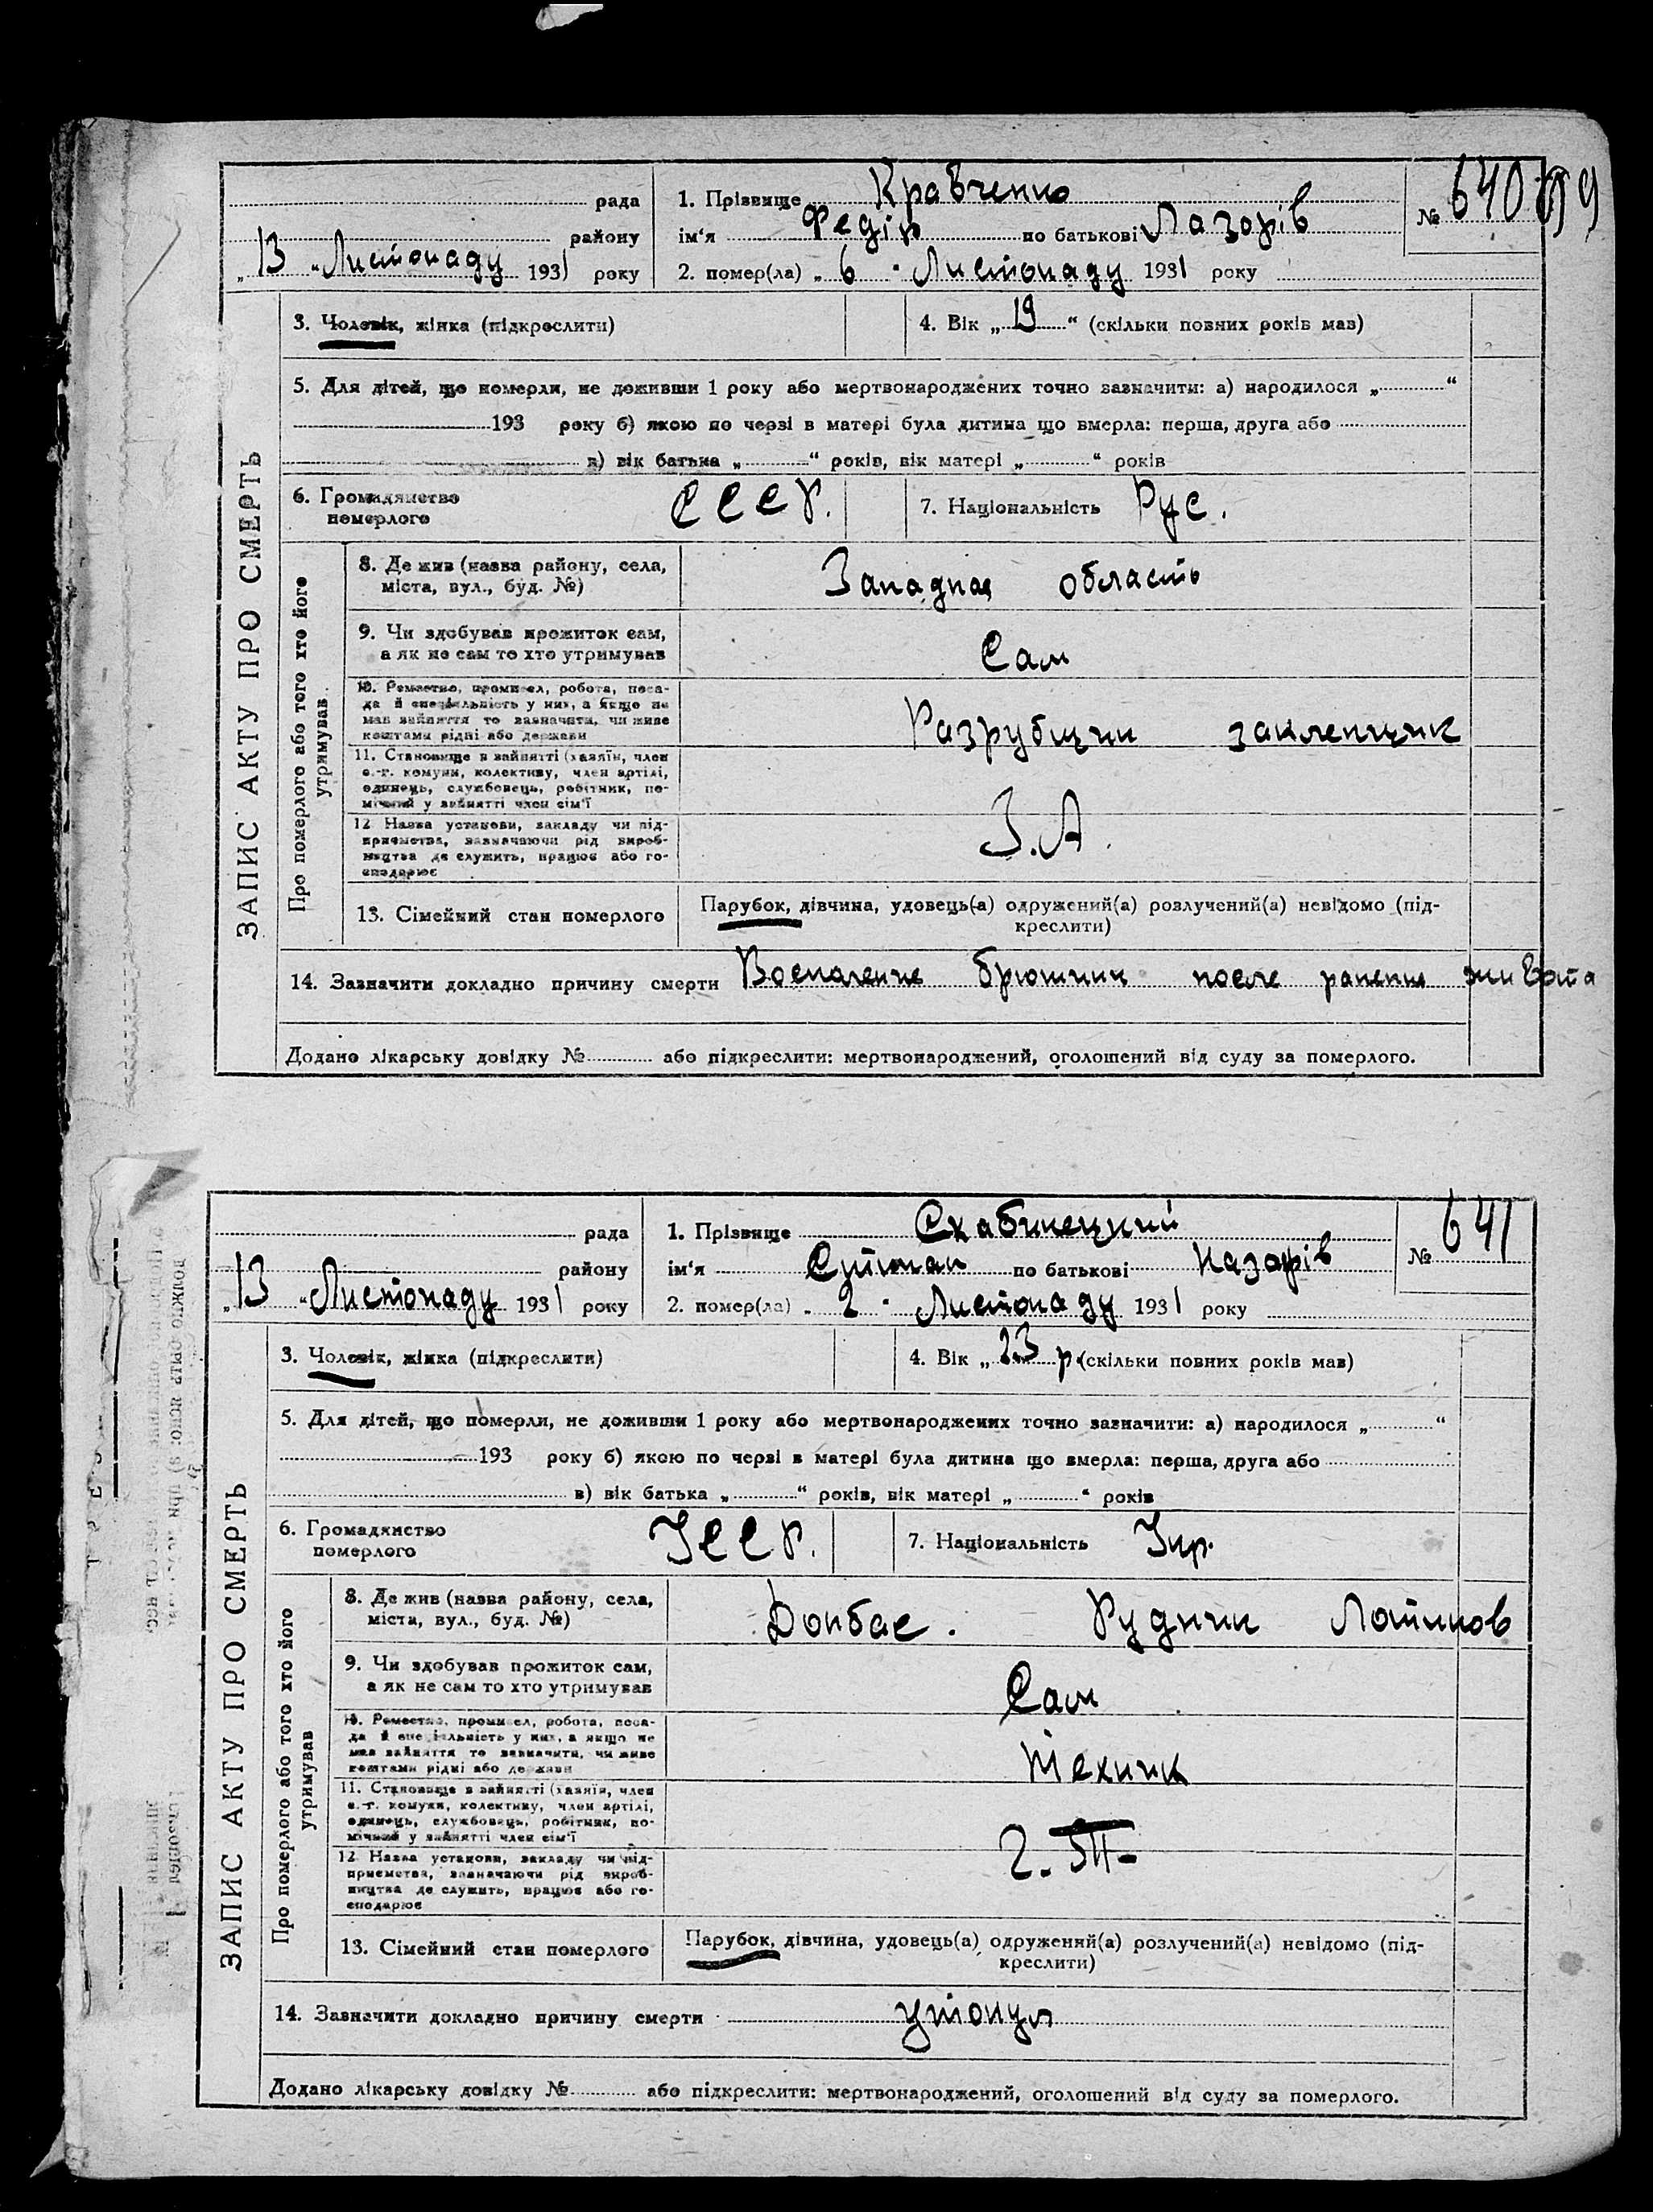 рада
району
„13“ Листопаду 1931 року
1. Прізвище Кравченко
ім‘я Федір по батькові Лазорів
2. помер(ла) „6“ Листопаду 1931 року
№ 640
99
ЗАПИС АКТУ ПРО СМЕРТЬ
3. Чоловік, жінка (підкреслити)
4. Вік „19“ (скільки повних років мав)
5. Для дітей, що померли, не доживши 1 року або мертвонароджених точно зазначити: а) народилося „ “
193 року б) якою по черзі в матері була дитина що вмерла: перша, друга або
в) вік батька „ “ років, вік матері „ “ років
6. Громадянство
померлого
СССР.
7. Національність Рус.
Про померлого або того хто його
утримував
8. Де жив (назва району, села,
міста, вул., буд. №)
Западная область
9. Чи здобував прожиток сам,
а як не сам то хто утримував
Сам
10. Ремество, промисел, робота, поса-
да й спеціяльність у них, а якщо не
мав зайняття то зазначити, чи живе
коштами рідні або держави
Разрубщик заклепщик
11. Становище в зайнятті (хазяїн, член
с.-г. комуни, колективу, член артілі,
одинець, службовець, робітник, по-
мічний у зайнятті член сім‘ї
12 Назва установи, закладу чи під-
приємства, зазначаючи рід вироб-
ництва де служить, працює або го-
сподарює
З.А.
13. Сімейний стан померлого
Парубок, дівчина, удовець(а) одружений(а) розлучений(а) невідомо (під-
креслити)
14. Зазначити докладно причину смерти Воспаление брюшини после ранения живота
Додано лікарську довідку № або підкреслити: мертвонароджений, оголошений від суду за померлого.
рада
району
„13“ Листопаду 1931 року
1. Прізвище Скабинецкий
ім‘я по батькові Назарів
2. помер(ла) „2“ Листопаду 1931 року
№ 641
ЗАПИС АКТУ ПРО СМЕРТЬ
3. Чоловік, жінка (підкреслити)
4. Вік „23 р. (скільки повних років мав)
5. Для дітей, що померли, не доживши 1 року або мертвонароджених точно зазначити: а) народилося „ “
193 року б) якою по черзі в матері була дитина що вмерла: перша, друга або
в) вік батька „ “ років, вік матері „ “ років
6. Громадянство
померлого
УССР.
7. Національність Укр.
Про померлого або того хто його
утримував
8. Де жив (назва району, села,
міста, вул., буд. №)
Донбас. Рудник
9. Чи здобував прожиток сам,
а як не сам то хто утримував
Сам
10. Ремество, промисел, робота, поса-
да й спеціяльність у них, а якщо не
мав зайняття то зазначити, чи живе
коштами рідні або держави
Техник
11. Становище в зайнятті (хазяїн, член
с.-г. комуни, колективу, член артілі,
одинець, службовець, робітник, по-
мічний у зайнятті член сім‘ї
12 Назва установи, закладу чи під-
приємства, зазначаючи рід вироб-
ництва де служить, працює або го-
сподарює
13. Сімейний стан померлого
Парубок, дівчина, удовець(а) одружений(а) розлучений(а) невідомо (під-
креслити)
14. Зазначити докладно причину смерти утонул
Додано лікарську довідку № або підкреслити: мертвонароджений, оголошений від суду за померлого.